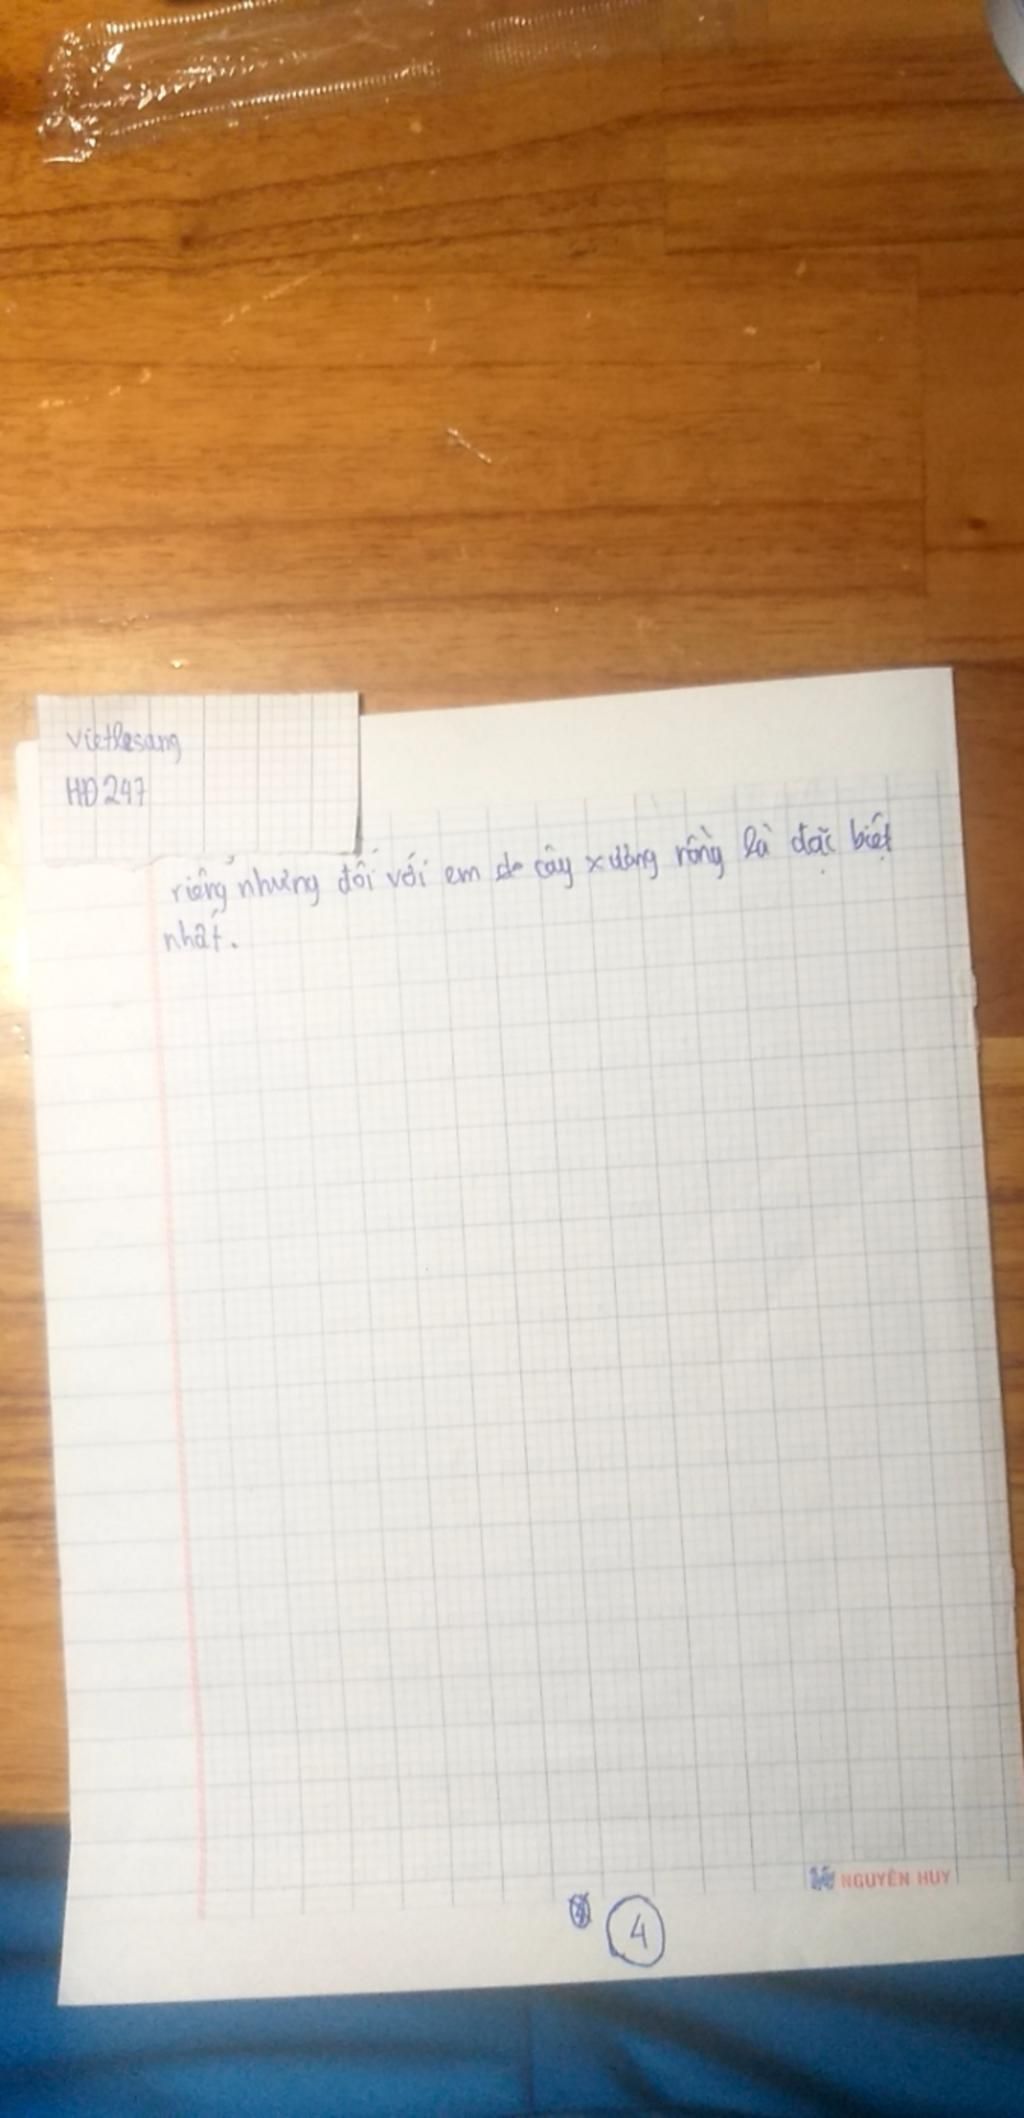 vietlesang
HĐ247
riêng nhưng đối với em cây xương rồng là đặc biệt
nhất.
NGUYÊN HUY
4